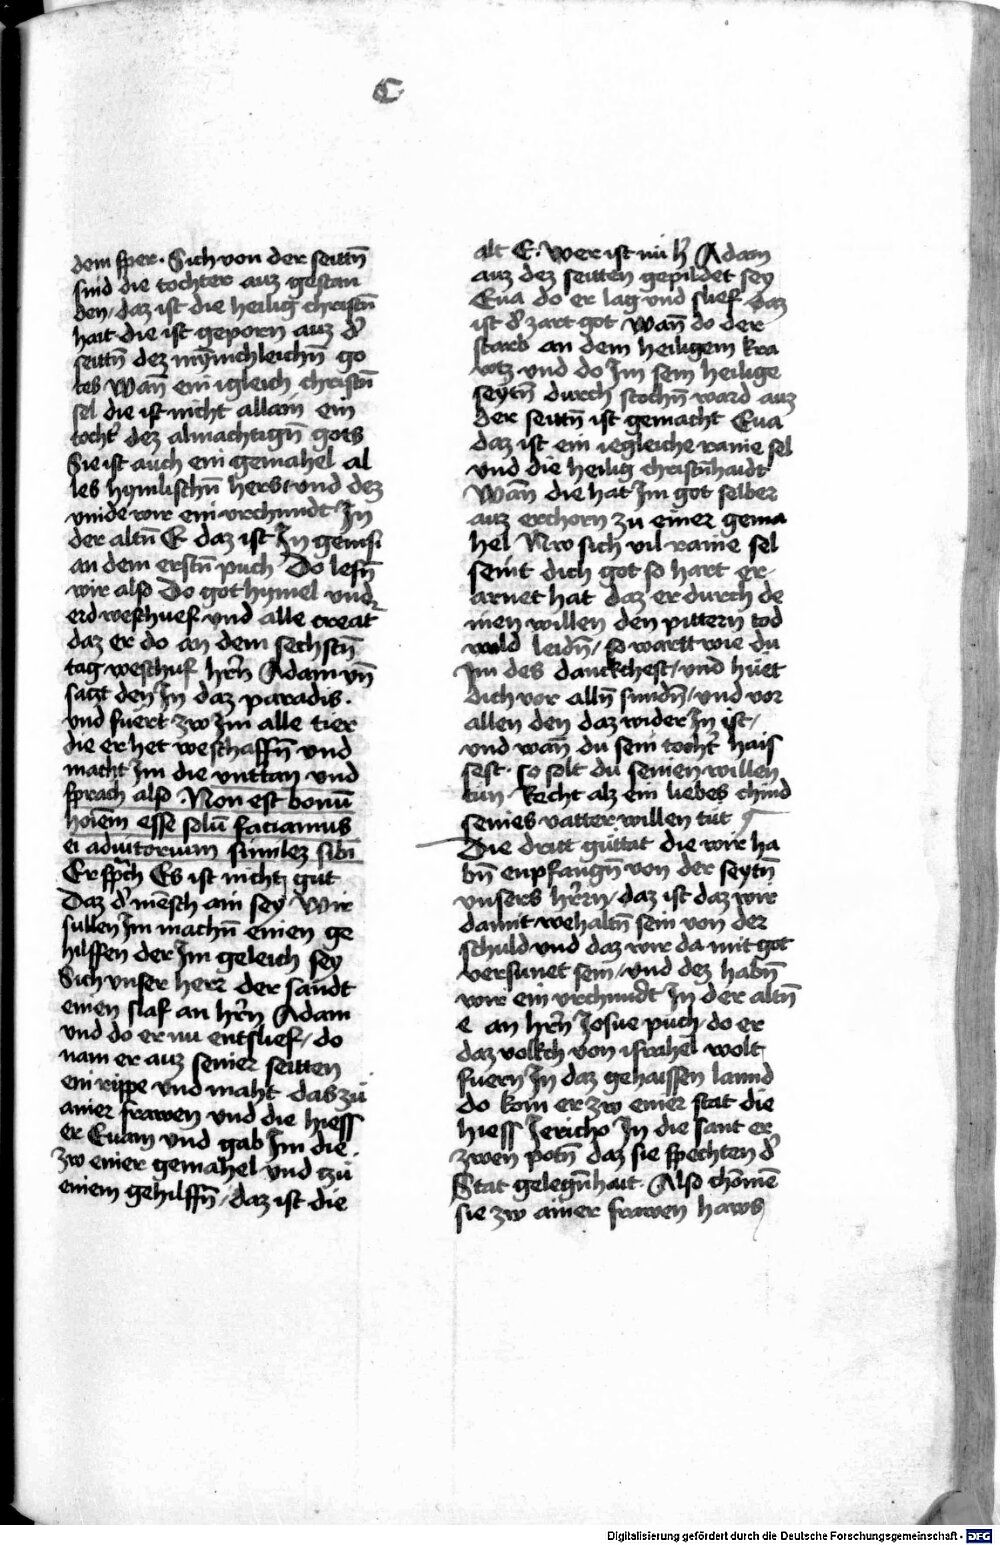 C
dem sper. Sich von der seittn̄
sind die tochter auz gestan
den / daz ist die heilig christn̄
hait die ist geporn auz d̓
seittn̄ dez mȳnichleichn̄ go
tes Wan̄ ein igleich christn̄
sel die ist nicht allain ein
tocht̓ dez almachtign̄ gots
Sie ist auch ein gemahel al
les hymlischn̄ hers / vnd dez
vinde wir ein vrchundt In
der altn̄ E daz ist In genesi
an dem erstn̄ puch Do lesn̄
wir also Do got hymel vnd
erd weschuef vnd alle creat̓
daz er do an dem sechstn̄
tag weschuf hr̄n Adam vn̄
sazt den In daz paradis.
vnd fuert zw Im alle tier
die er het weschaffn̄ vnd
macht Im die vnttan vnd
sprach also . Non est bonū
hoīem esse solū faciamus
ei adiutorium similez sibi
Er sprach Es ist nicht gut
Daz d̓ mēsch ain sey Wir
sullen Im machn̄ einen ge
hilffen der Im geleich sey
Sich vnser herr der sandt
einen slaf an hr̄n Adam
vnd do er nu entslief / do
nam er auz seiner seitten
ein rippe vnd maht das zū
ainer frawen vnd die hiess
er Euam vnd gab Im die
zw einer gemahel vnd czū
einem gehilffn̄ / daz ist die
alt E. Wer ist nū h̓ Adam
auz dez seitten gepildet sey
Eua do er lag vnd slief daz
ist d̓ zart got Wan̄ do der
starb an dem heiligem kra
wtz vnd do Im sein heilige
seytn̄ durch stochn̄ ward auz
der seittn̄ ist gemacht Eua
daz ist ein iegleiche raine sel
vnd die heilig christn̄haidt
Wan̄ die hat Im got selber
auz erchorn zu einer gema
hel Nw sich vil raine sel
seint dich got so hart er
arnet hat daz er durch de
inen willen den pittern tod
wold leidn̄ / so wartt wie du
Im des danckchest / vnd hüet
dich vor alln̄ sundn̄ / vnd vor
allen den daz wider In ist /
vnd wan̄ du sein tocht̓ hais
sest . so solt du seinen willen
tün . Recht alz ein liebes chind
seines vatter willen tüt
Die dritt güttat die wir ha
bn̄ enpfangn̄ von der seytn̄
vnsers hr̄rn / daz ist daz wir
damit wehaltn̄ sein von der
schuld vnd daz wir da mit got
versunet sein / vnd dez habn̄
wir ein vrchundt In der altn̄
e an hr̄n Josue puch / do er
daz volkch von israhel wolt
fuern In daz gehaissen lannd
do kom er zw einer stat die
hiess Jericho In die sant er
zwen potn̄ daz sie spechten d̓
Stat gelegn̄hait . Also chōmē
sie zw ainer frawen haws
Digitalisierung gefördert durch die Deutsche Forschungsgemeinschaft - DFG